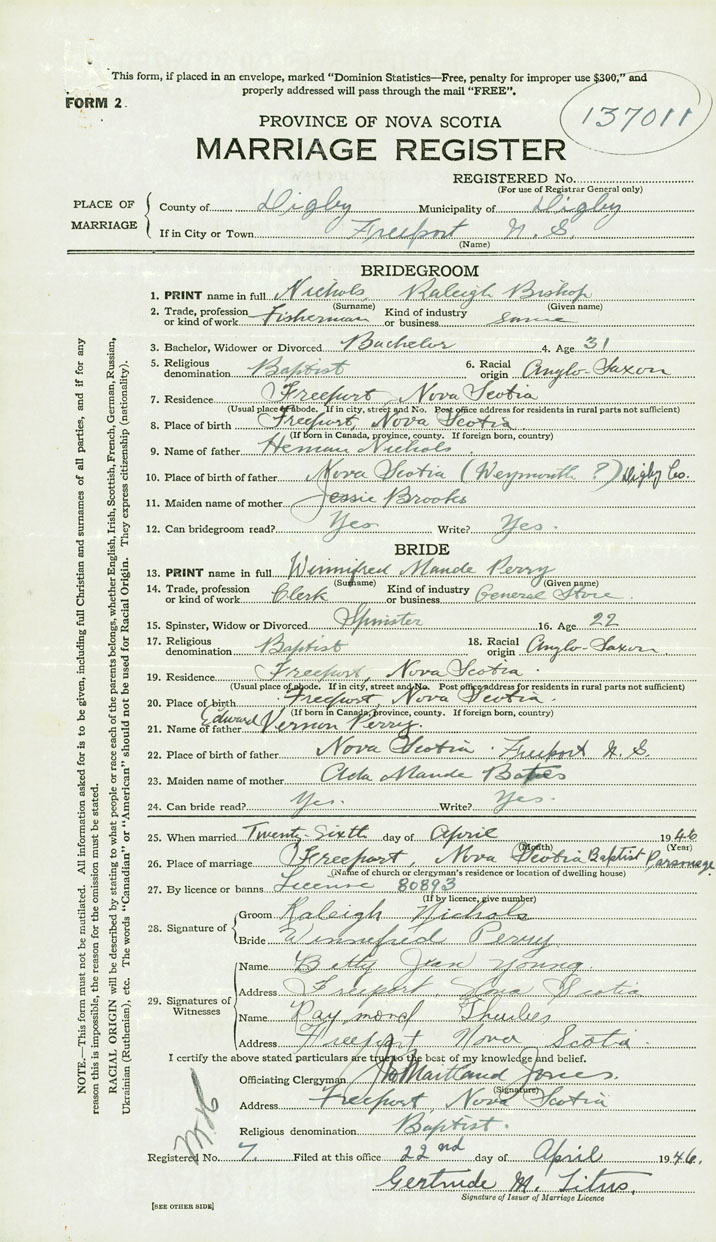 This form, if placed in an envelope, marked “Dominion Statistics—Free, penalty for improper use $300,” and
properly addressed will pass through the mail “FREE”.
FORM 2.
137011
PROVINCE OF NOVA SCOTIA
MARRIAGE REGISTER
REGISTERED No.
(For use of Registrar General only)
PLACE OF MARRIAGE
County of Digby Municipality of Digby
If in City or Town Freeport N. S.
(Name)
BRIDEGROOM
1. PRINT name in full Nichols Raleigh Bishop
(Surname) (Given name)
2. Trade, profession or kind of work Fisherman Kind of industry or business same
3. Bachelor, Widower or Divorced Bachelor 4. Age 31
5. Religious denomination Baptist 6. Racial origin Anglo-Saxon
7. Residence Freeport, Nova Scotia
(Usual place of abode. If in city, street and No. Post office address for residents in rural parts not sufficient)
8. Place of birth Freeport, Nova Scotia
(If born in Canada, province, county. If foreign born, country)
9. Name of father Heman Nichols
10. Place of birth of father Nova Scotia (Weymouth ?) Digby Co.
11. Maiden name of mother Jessie Brooks
12. Can bridegroom read? Yes. Write? Yes.
BRIDE
13. PRINT name in full Winnifred Maude Perry
(Surname) (Given name)
14. Trade, profession or kind of work Clerk Kind of industry or business General Store.
15. Spinster, Widow or Divorced Spinster 16. Age 22
17. Religious denomination Baptist 18. Racial origin Anglo-Saxon
19. Residence Freeport, Nova Scotia.
(Usual place of abode. If in city, street and No. Post office address for residents in rural parts not sufficient)
20. Place of birth Freeport, Nova Scotia.
(If born in Canada, province, county. If foreign born, country)
21. Name of father Edward Vernon Perry.
22. Place of birth of father Nova Scotia. Freeport N. S.
23. Maiden name of mother Ada Maude Bates
24. Can bride read? Yes. Write? Yes.
25. When married Twenty Sixth day of April 1946
(Month) (Year)
26. Place of marriage Freeport, Nova Scotia Baptist Parsonage
(Name of church or clergyman's residence or location of dwelling house)
27. By licence or banns License 80893
(If by licence, give number)
28. Signature of
Groom Raleigh Nichols
Bride Winnifred Perry
29. Signatures of Witnesses
Name Betty Jean Young
Address Freeport, Nova Scotia
Name Raymond
Address Freeport Nova Scotia.
I certify the above stated particulars are true to the best of my knowledge and belief.
Officiating Clergyman Maitland Jones.
(Signature)
Address Freeport, Nova Scotia
Religious denomination Baptist.
Registered No. 7. Filed at this office 22nd day of April 1946.
Gertrude M. Titus.
Signature of Issuer of Marriage Licence
[SEE OTHER SIDE]
NOTE.—This form must not be mutilated. All information asked for is to be given, including full Christian and surnames of all parties, and if for any
reason this is impossible, the reason for the omission must be stated.
RACIAL ORIGIN will be described by stating to what people or race each of the parents belongs, whether English, Irish, Scottish, French, German, Russian,
Ukrainian (Ruthenian), etc. The words “Canadian” or “American” should not be used for Racial Origin. They express citizenship (nationality).